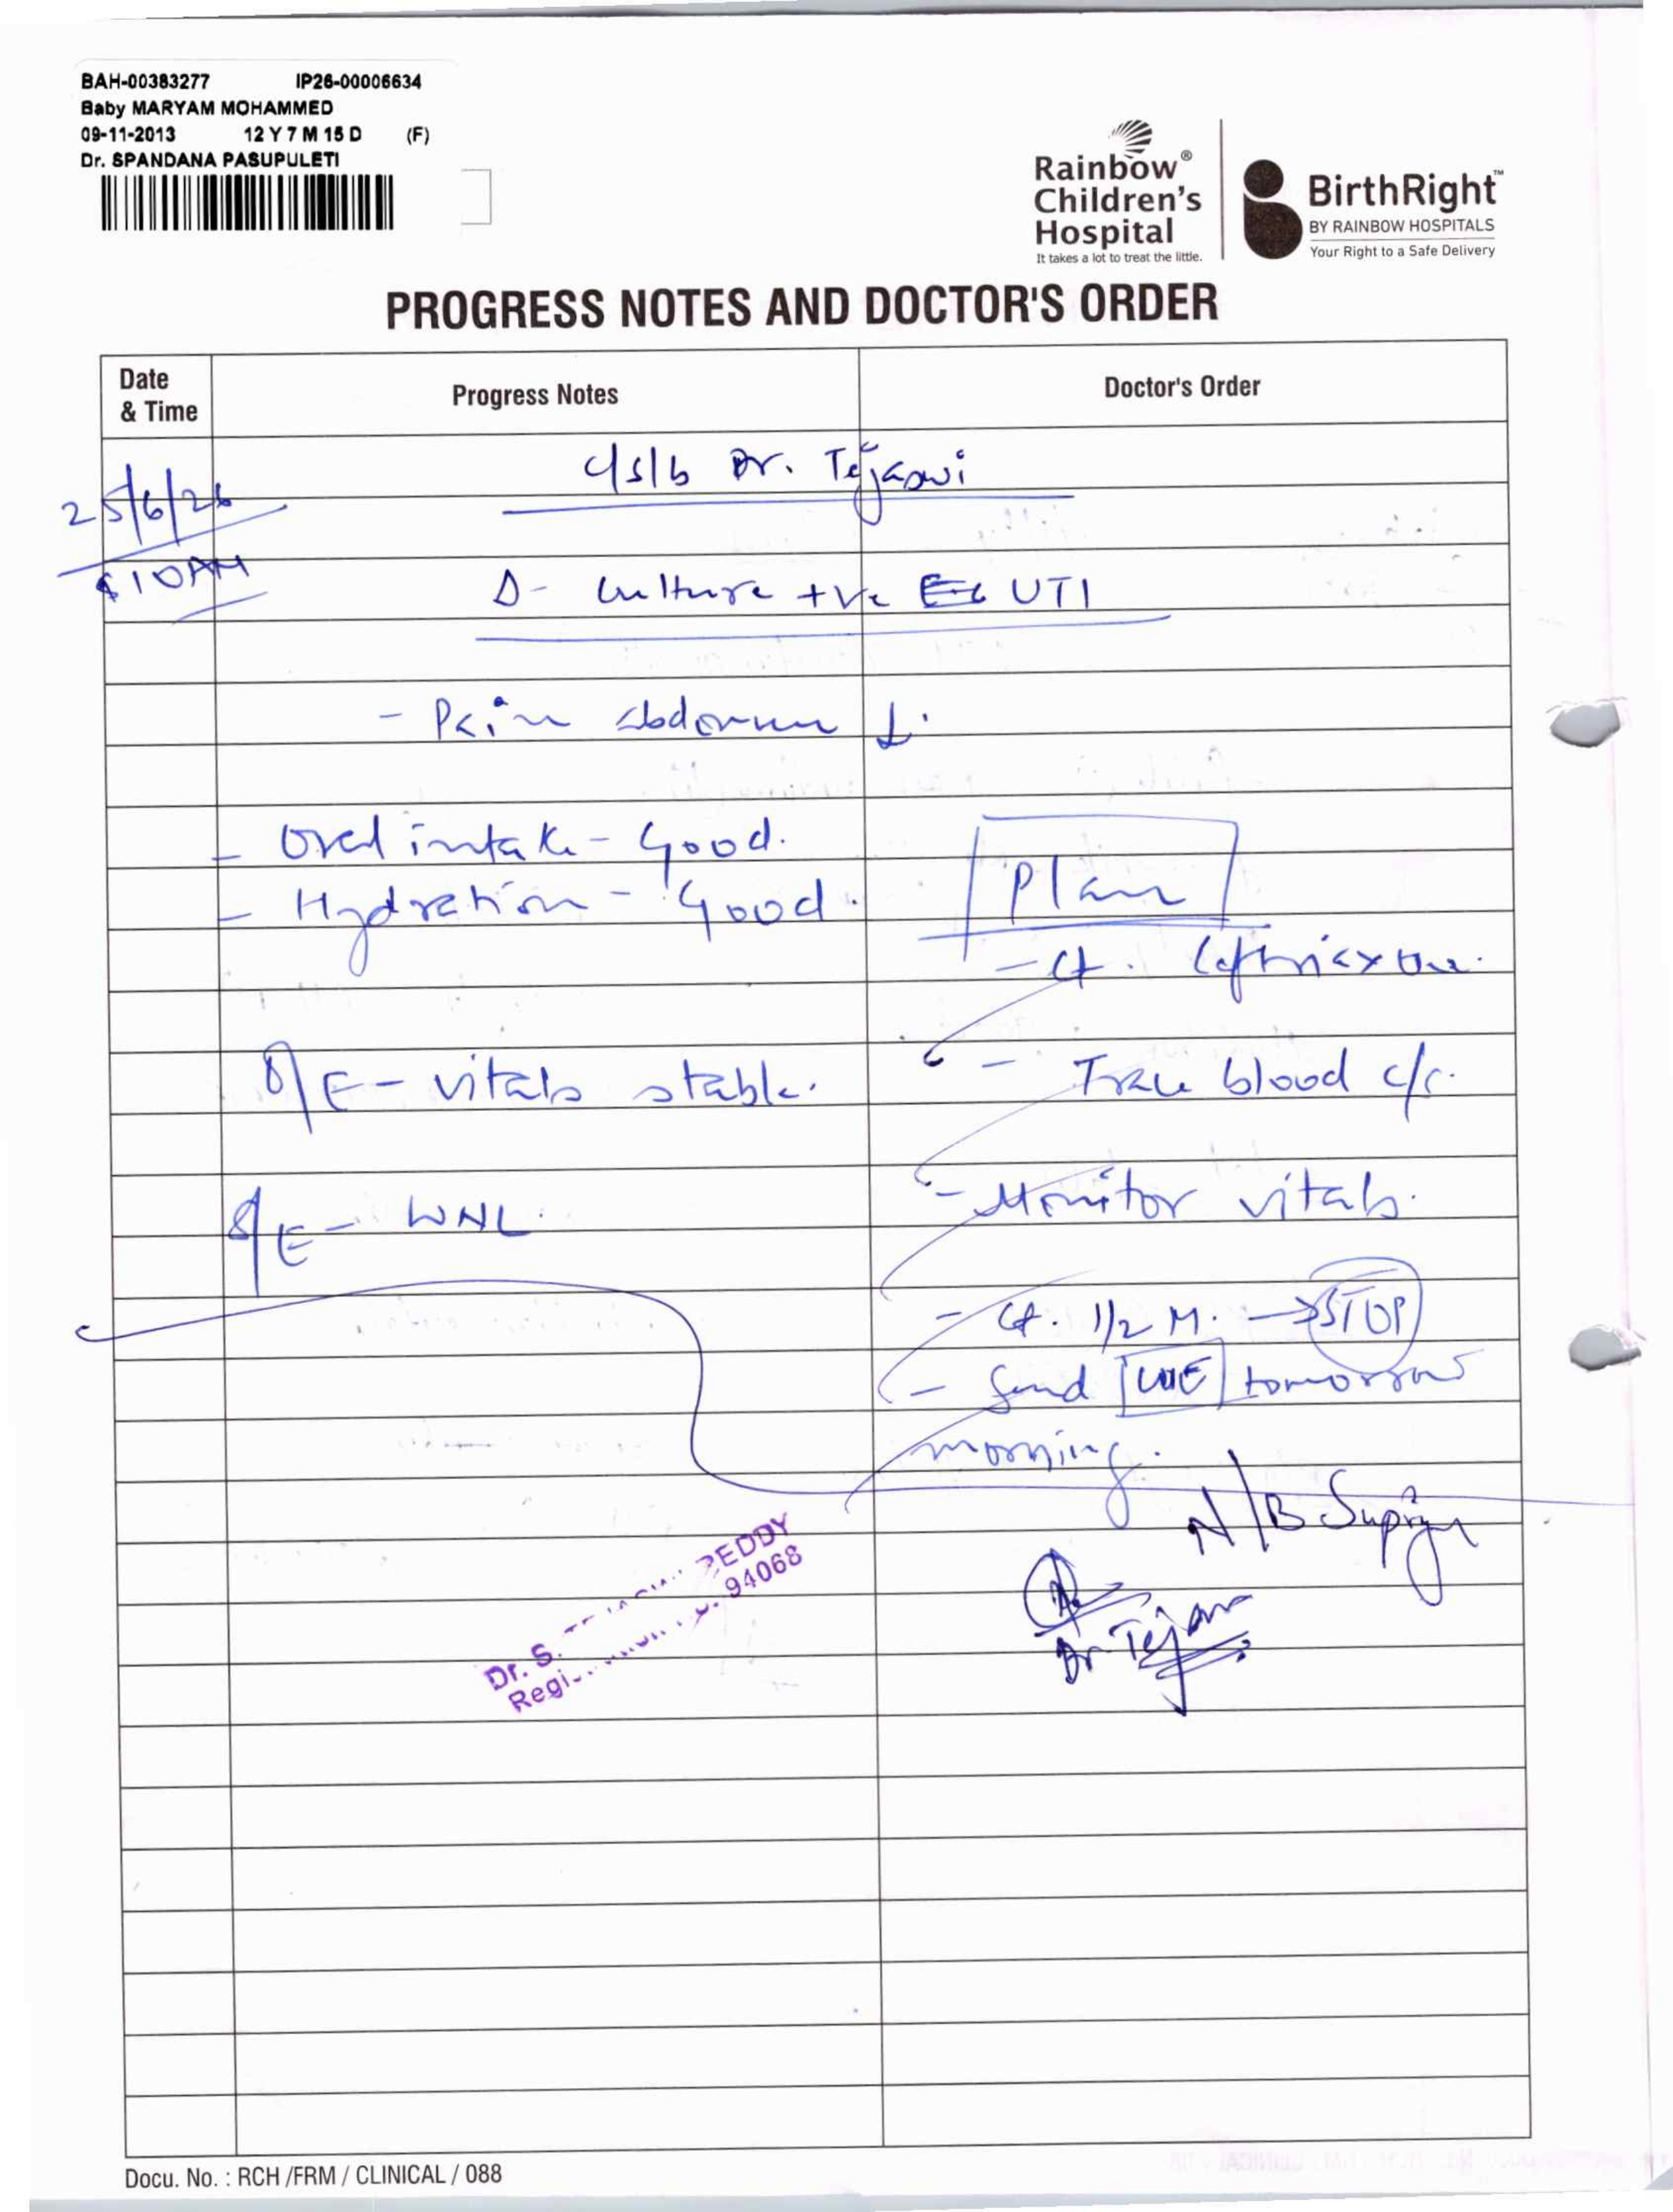 BAH-00383277 IP26-00006634
Baby MARYAM MOHAMMED
09-11-2013 12 Y 7 M 15 D (F)
Dr. SPANDANA PASUPULETI
Rainbow®
Children's
Hospital
It takes a lot to treat the little.
BirthRight™
BY RAINBOW HOSPITALS
Your Right to a Safe Delivery
PROGRESS NOTES AND DOCTOR'S ORDER
Date
& Time
Progress Notes
Doctor's Order
25/6/26
10AM
c/s/b Dr. Tejaswi
Δ - Culture +ve UTI
- Pain abdomen ↓.
- Oral intake - Good.
- Hydration - Good.
O/E - vitals stable.
S/E - WNL.
Plan
- Ct. Ceftriaxone.
- Trace blood c/s.
- Monitor vitals.
- Ct. 1/2 M. → STOP
- Send CUE tomorrow
morning.
N/B Supriya
Dr. Tejaswi
Dr. S. REDDY
94068
Docu. No. : RCH /FRM / CLINICAL / 088